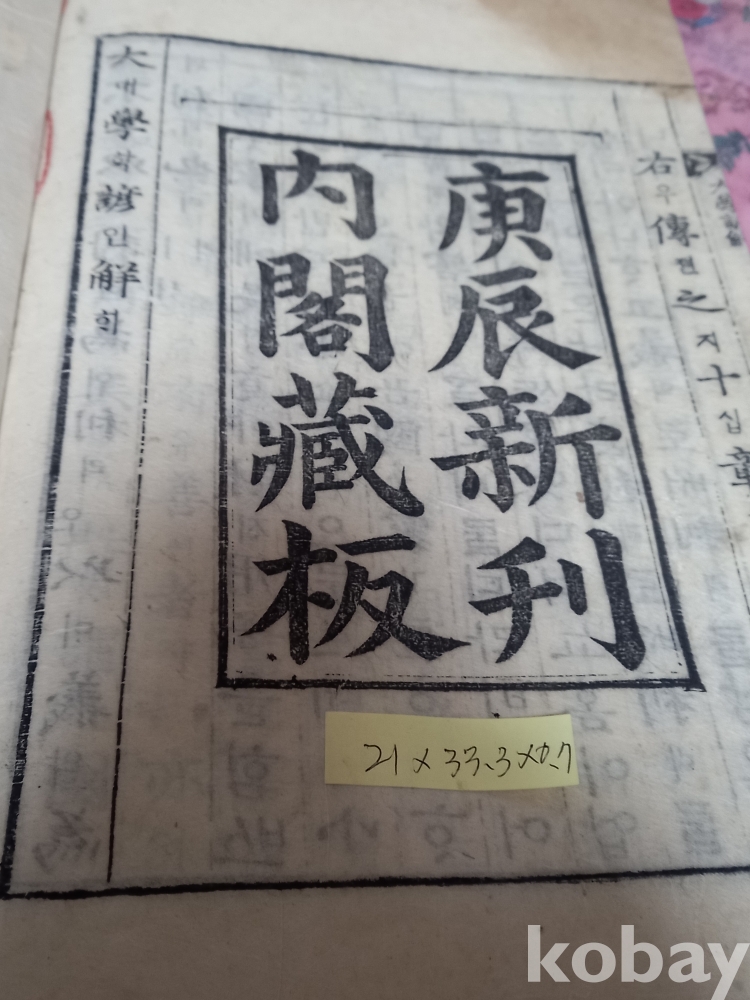 右우傳젼之지十십章
庚辰新刊
內閣藏板
大대學학諺언解ᄒᆡ
21 x 33.3 x 0.7
kobay